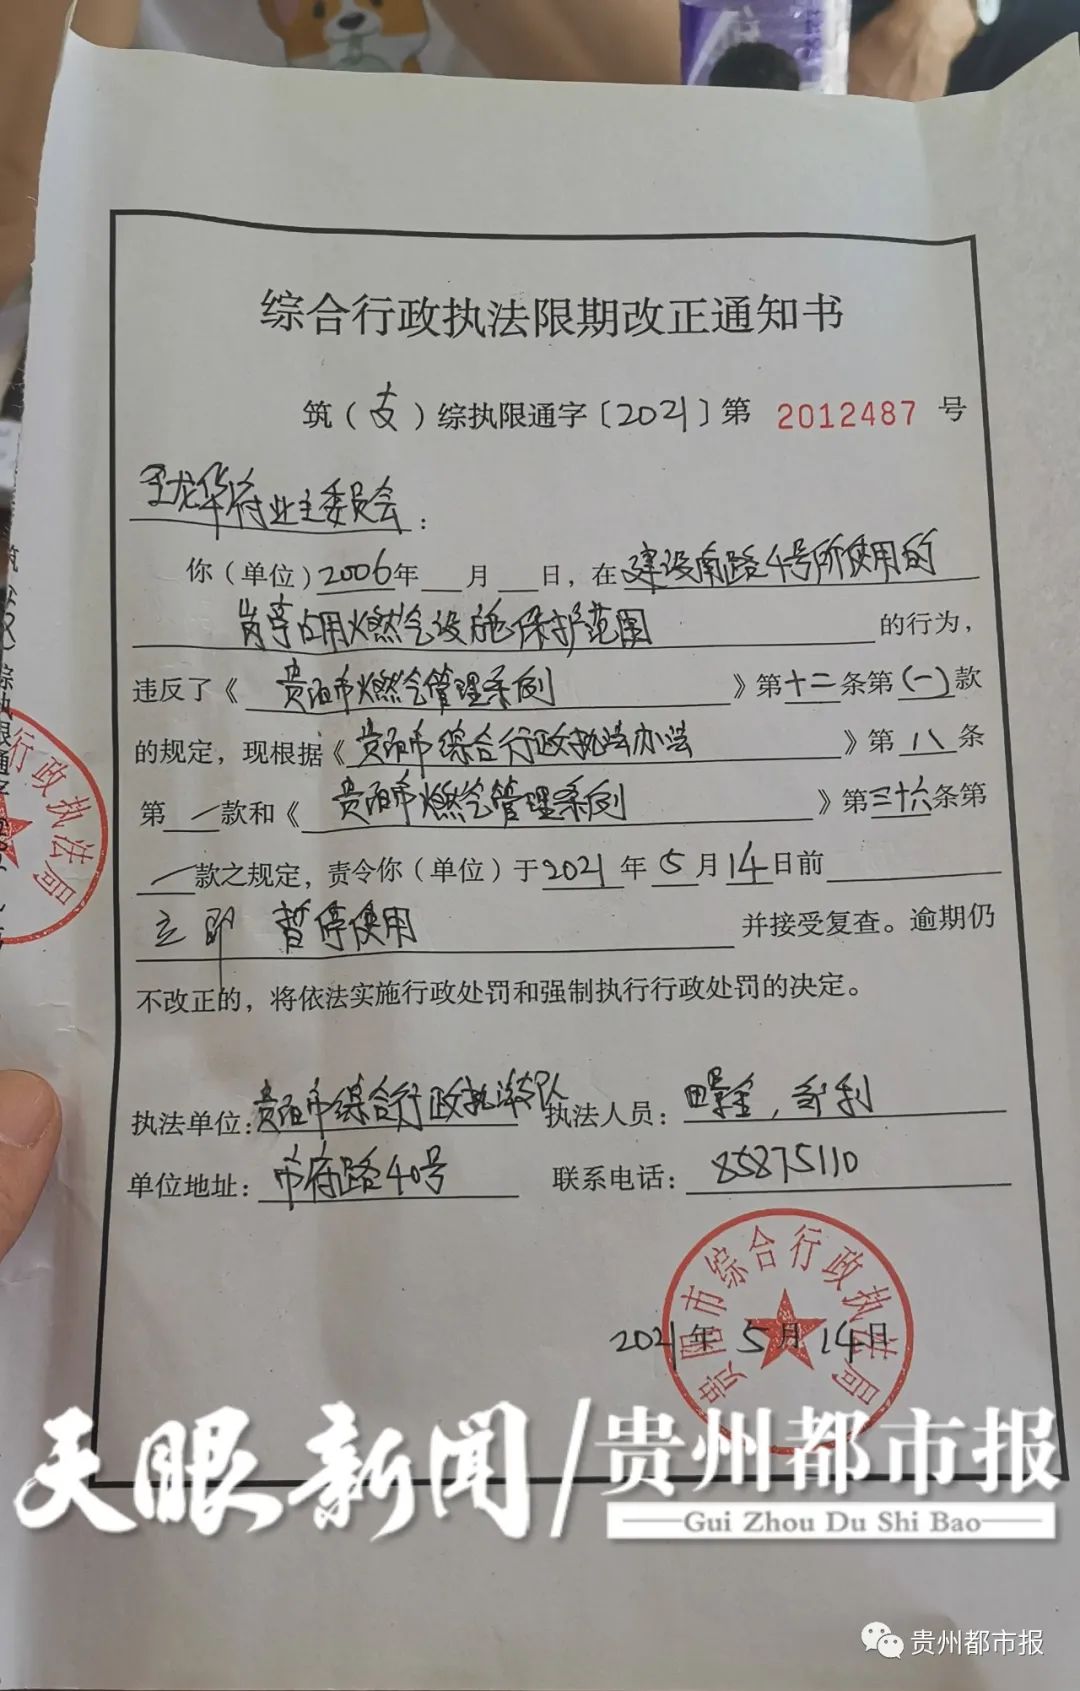 综合行政执法限期改正通知书
筑（支）综执限通字〔2021〕第 2012487 号
玉龙华府业主委员会：
你（单位）2006年 月 日，在建设南路4号所使用的
岗亭占用燃气设施保护范围 的行为，
违反了《贵阳市燃气管理条例》第十二条第(一)款
的规定，现根据《贵阳市综合行政执法办法》第八条
第一款和《贵阳市燃气管理条例》第三十六条第
一款之规定，责令你（单位）于2021年5月14日前
立即 暂停使用 并接受复查。逾期仍
不改正的，将依法实施行政处罚和强制执行行政处罚的决定。
执法单位：贵阳市综合行政执法支队 执法人员：
单位地址：市府路40号 联系电话：85875110
贵阳市综合行政执法局
2021年5月14日
行政执法局
天眼新闻/贵州都市报
Gui Zhou Du Shi Bao
贵州都市报